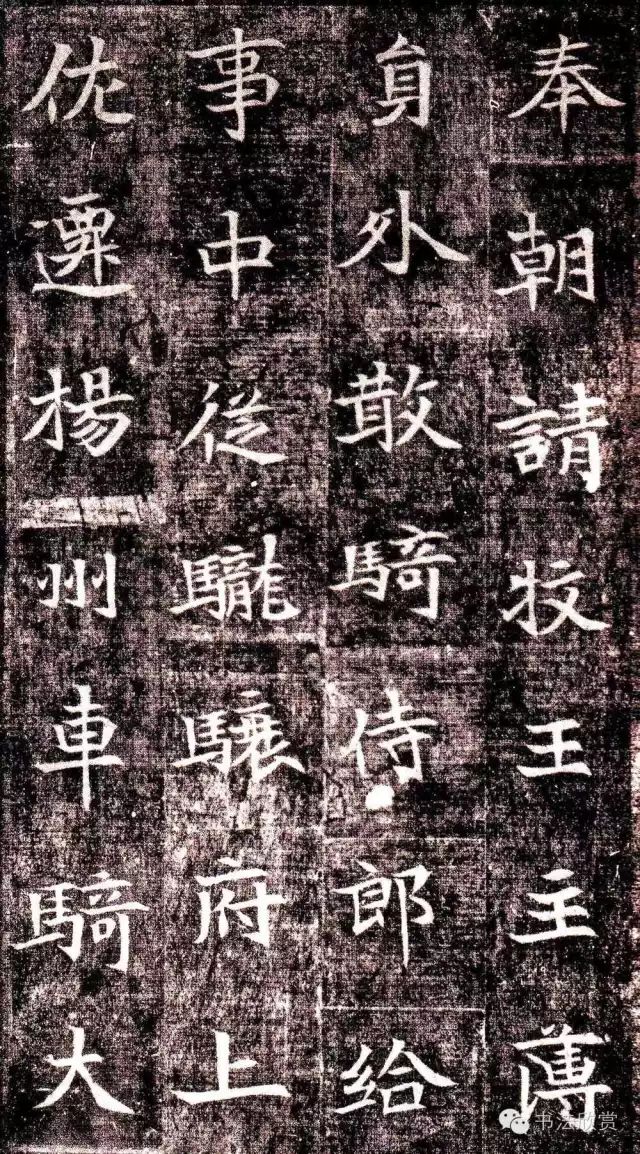 奉朝請牧王主薄
員外散騎侍郎給
事中從驣驤府上
佐遷揚州車騎大
书法欣赏